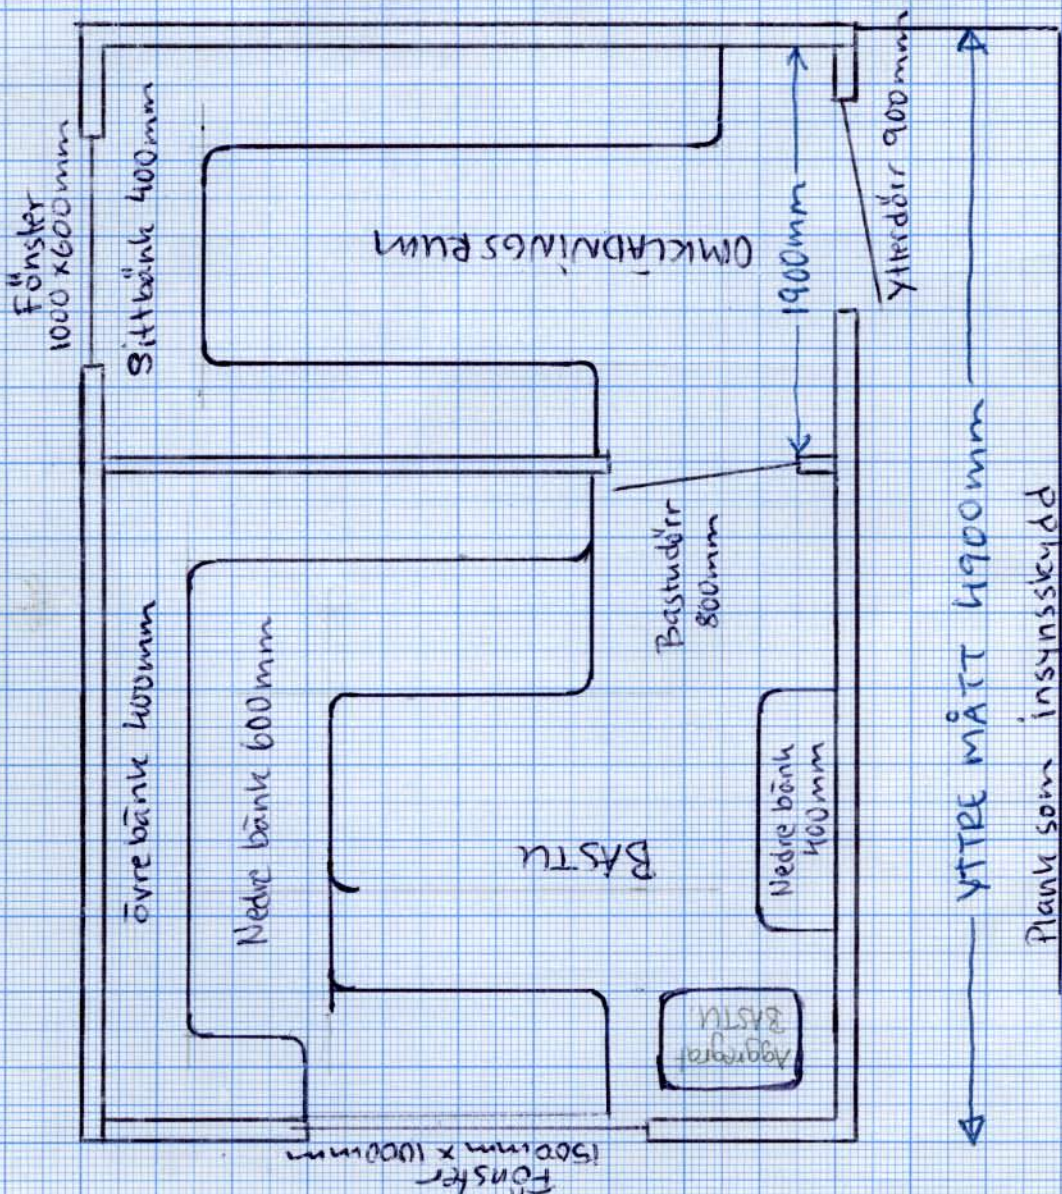 Fönster
1000 x 600mm
Sittbänk 400mm
OMKLÄDNINGSRUM
1900mm
Ytterdörr 900mm
övre bänk 400mm
Nedre bänk 600mm
Bastudörr
800mm
BASTU
Nedre bänk
400mm
Aggregat
BASTU
Fönster
1500mm x 1000mm
YTTRE MÅTT 4900mm
Plank som insynsskydd